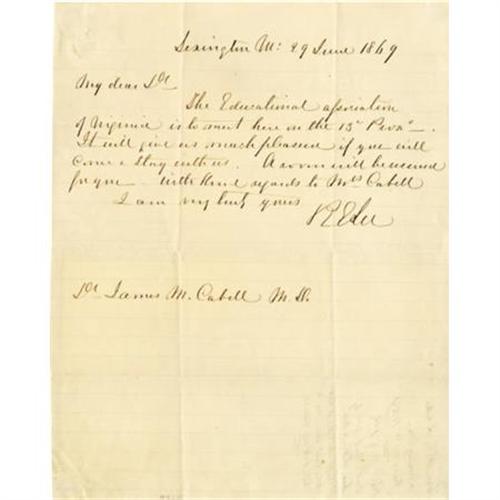 Lexington Va: 29 June 1869
My dear Dr
The Educational association
of Virginia is to meet here on the 13th Proxo.
It will give us much pleasure if you will
come & stay with us. A room will be reserved
for you - With kind regards to Mrs Cabell
I am very truly yours
R E Lee
Dr James M. Cabell M. D.